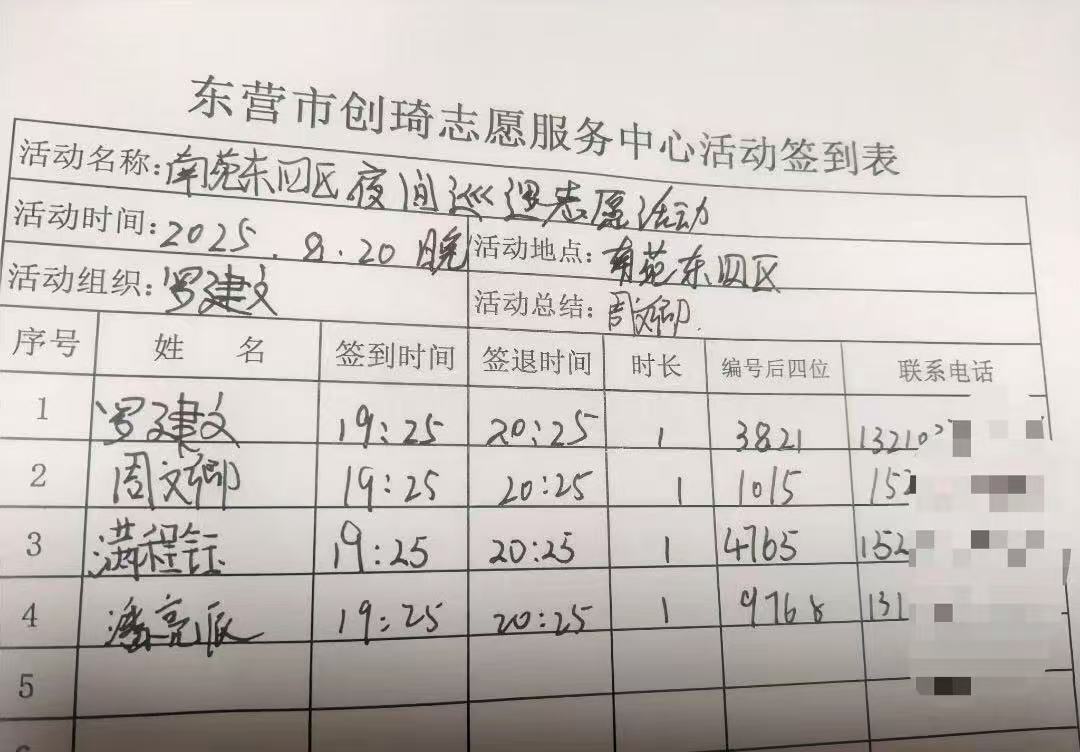 东营市创琦志愿服务中心活动签到表
活动名称:南苑东四区夜间巡逻志愿活动
活动时间:2025.8.20晚 活动地点:南苑东四区
活动组织:罗建文 活动总结:周文卿.
序号 姓 名 签到时间 签退时间 时长 编号后四位 联系电话
1 罗建文 19:25 20:25 1 3821 13210
2 周文卿 19:25 20:25 1 1015 152
3 满程钰 19:25 20:25 1 4765 152
4 19:25 20:25 1 9768 131
5